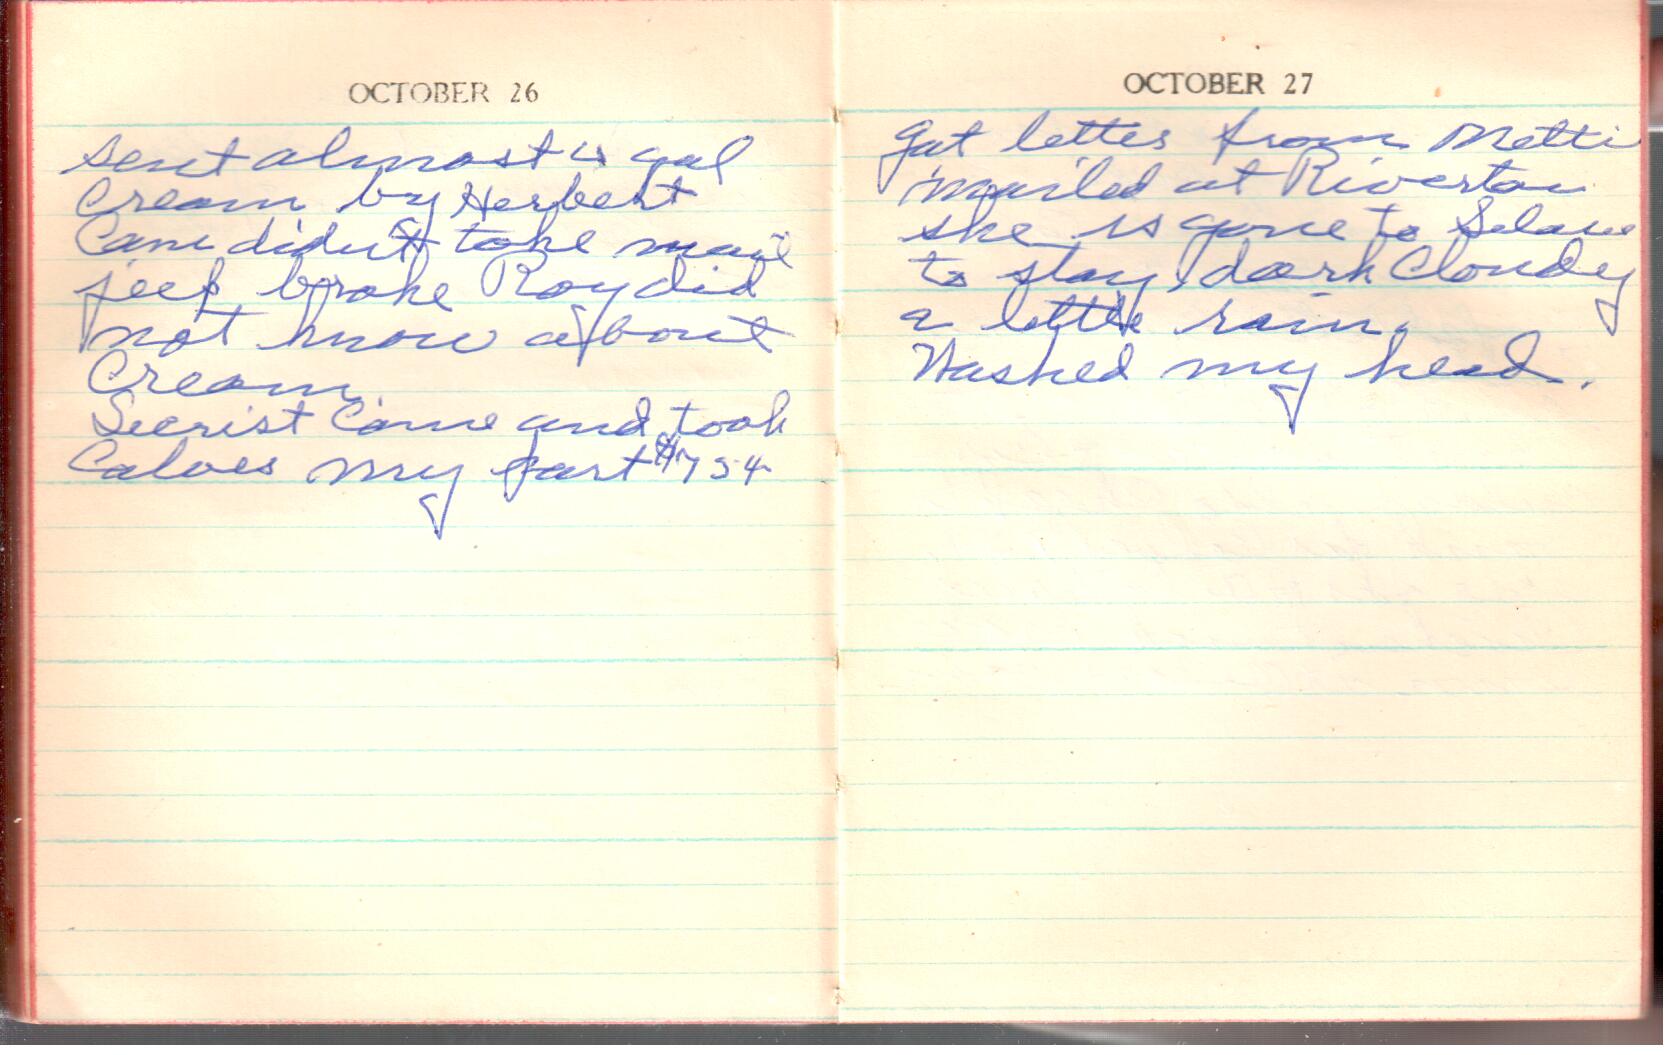 OCTOBER 26
sent almost gal
Cream by Herbert
Cane didn't take mail
jeep broke Roy did
not know about
Cream
Secrist Came and took
Calves my part $754
OCTOBER 27
Got letter from Metti
mailed at Riverton
she is gone to
to stay dark Cloudy
a little rain.
Washed my head.